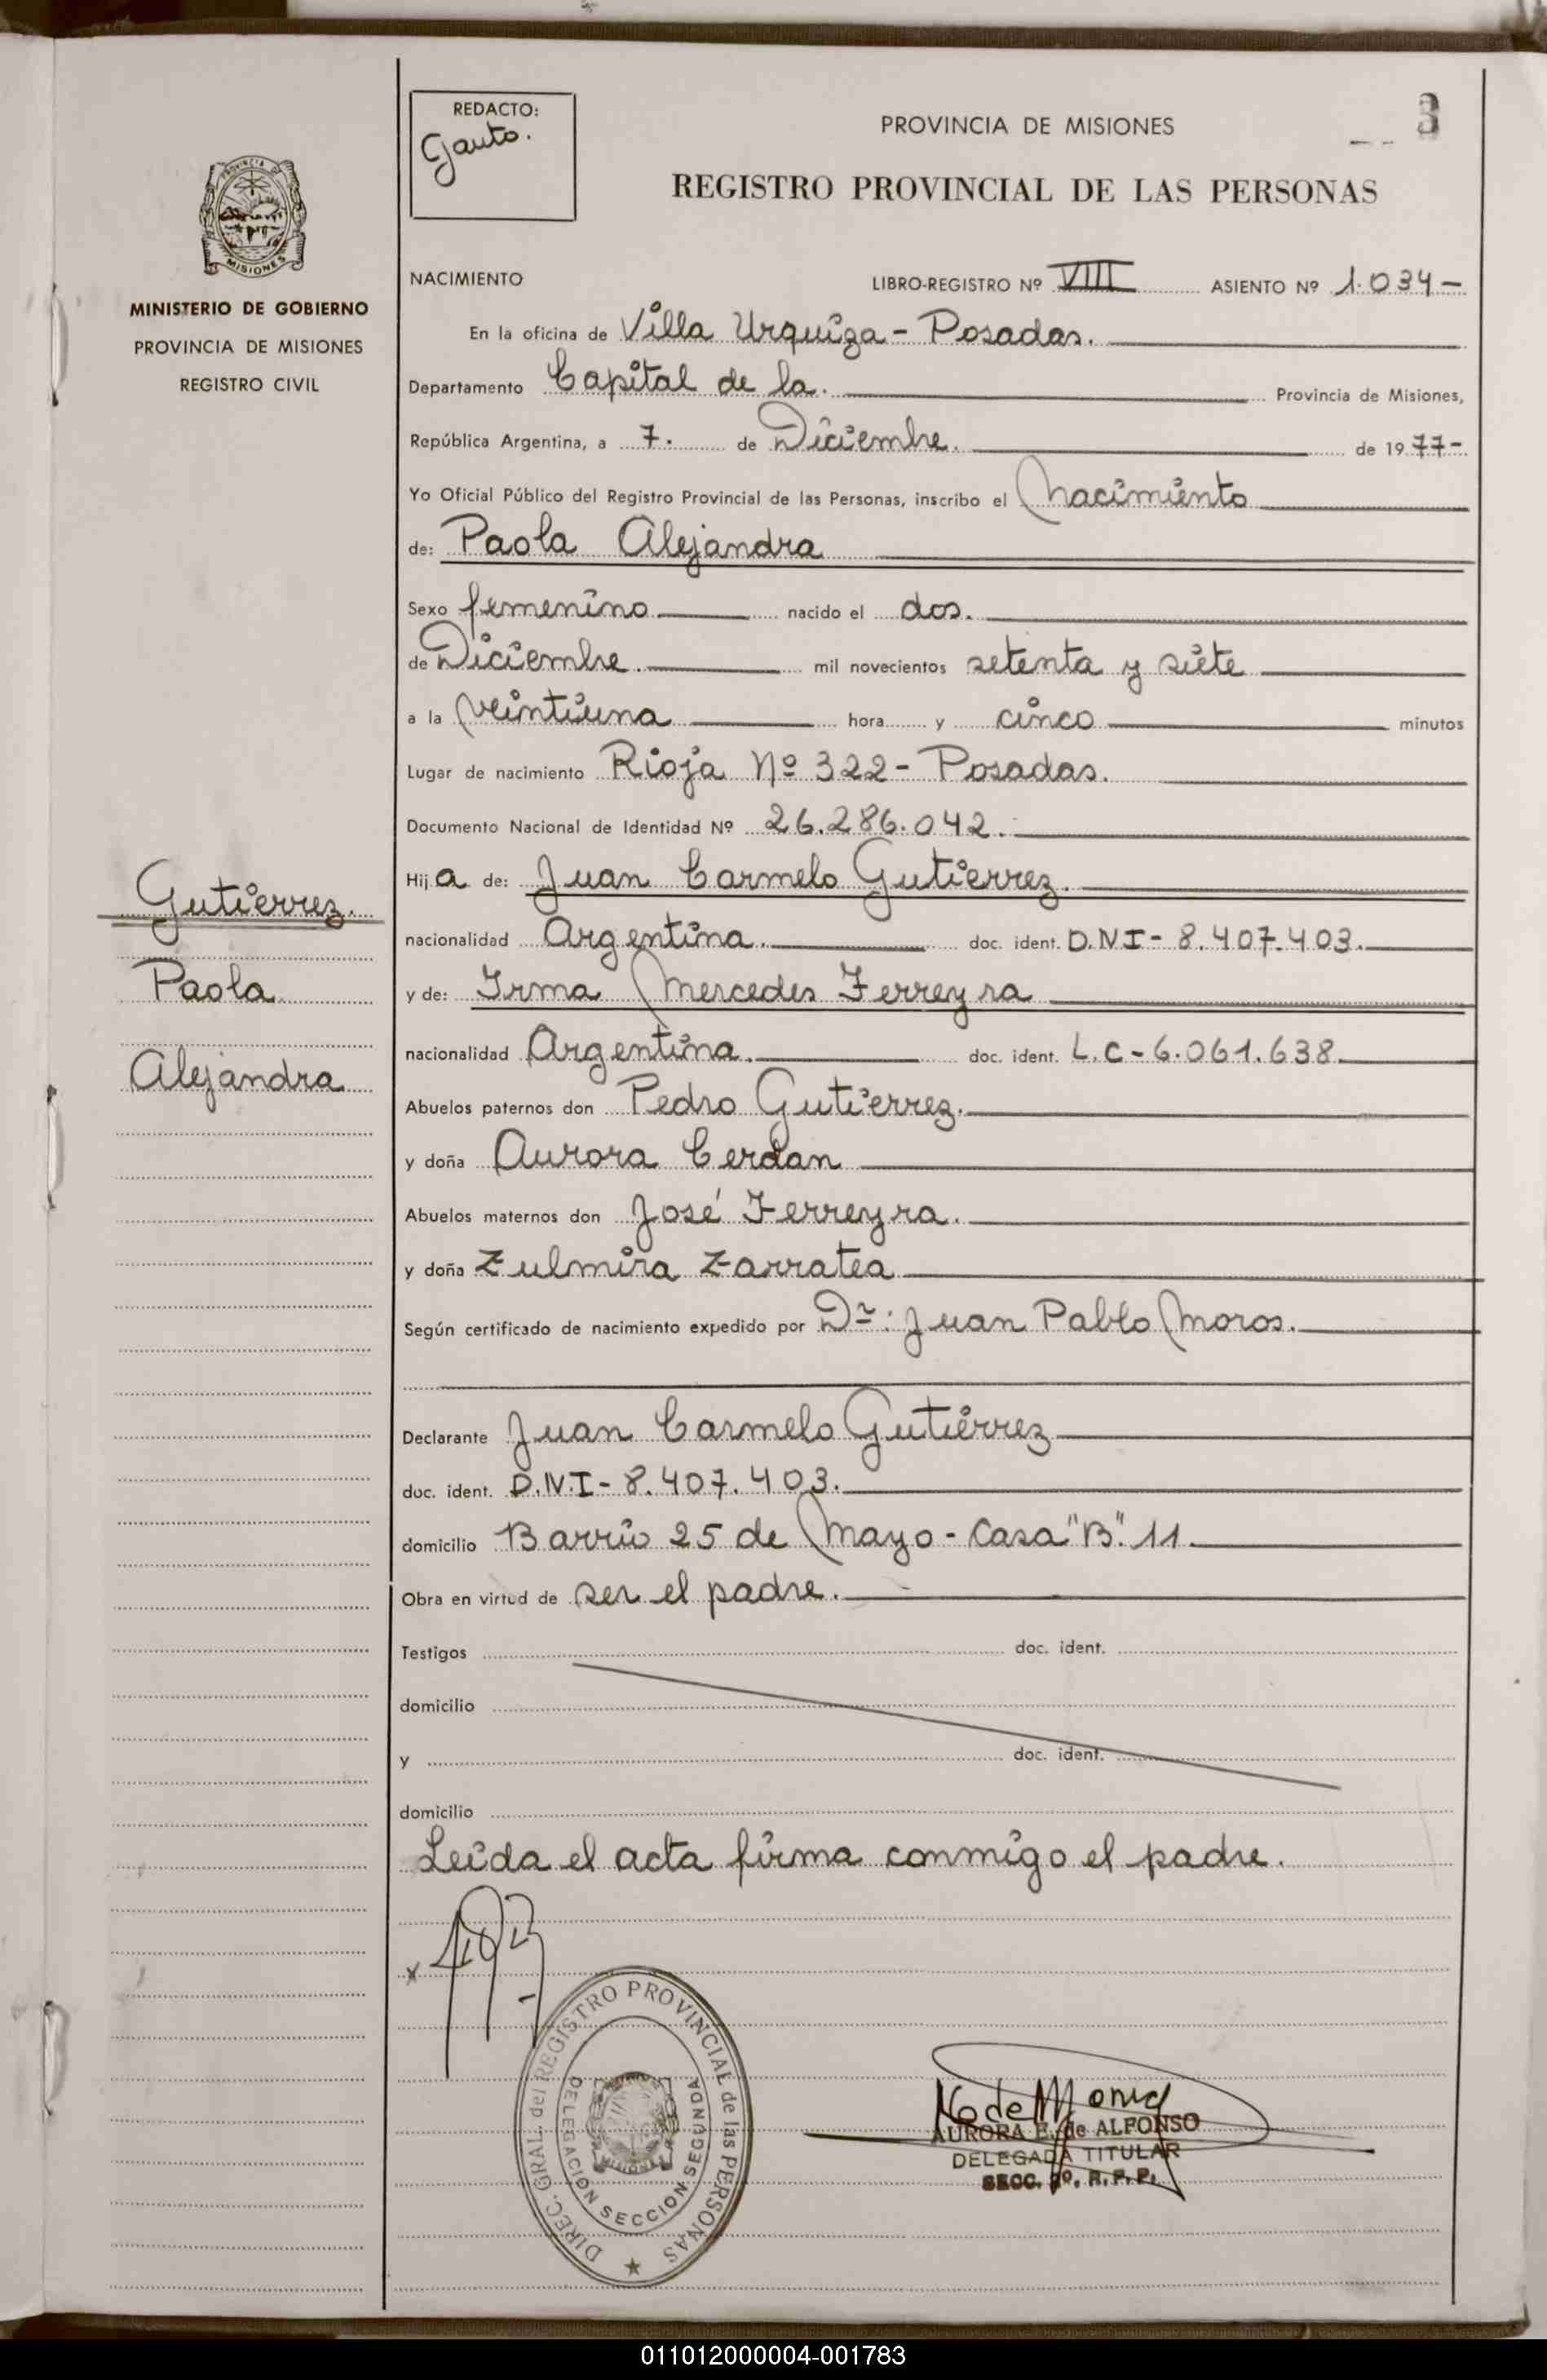 REDACTO:
Gauto.
3
PROVINCIA DE MISIONES
REGISTRO PROVINCIAL DE LAS PERSONAS
PROVINCIA DE
MISIONES
MINISTERIO DE GOBIERNO
PROVINCIA DE MISIONES
REGISTRO CIVIL
NACIMIENTO LIBRO-REGISTRO Nº VIII ASIENTO Nº 1.034-
En la oficina de Villa Urquiza - Posadas.
Departamento Capital de la. Provincia de Misiones,
República Argentina, a 7. de Diciembre. de 1977-
Yo Oficial Público del Registro Provincial de las Personas, inscribo el Nacimiento
de: Paola Alejandra
Sexo femenino nacido el dos.
de Diciembre. mil novecientos setenta y siete
a la veintiuna hora y cinco minutos
Lugar de nacimiento Rioja Nº 322 - Posadas.
Documento Nacional de Identidad Nº 26.286.042.
Hija de: Juan Carmelo Gutierrez.
nacionalidad Argentina. doc. ident. D.N.I - 8.407.403.
y de: Irma Mercedes Ferreyra
nacionalidad Argentina. doc. ident. L.C - 6.061.638
Abuelos paternos don Pedro Gutierrez.
y doña Aurora Cerdan
Abuelos maternos don José Ferreyra.
y doña Zulmira Zarratea
Según certificado de nacimiento expedido por Dr: Juan Pablo Moros.
Declarante Juan Carmelo Gutierrez
doc. ident. D.N.I - 8.407.403.
domicilio Barrio 25 de Mayo - Casa "B". 11
Obra en virtud de ser el padre.
Testigos doc. ident.
domicilio
y doc. ident.
domicilio
Leida el acta firma conmigo el padre.
Gutierrez.
Paola
Alejandra
x
DIREC. GRAL. del REGISTRO PROVINCIAL de las PERSONAS
DELEGACION SECCION SEGUNDA
MISIONES
AURORA E. de ALFONSO
DELEGADA TITULAR
SECC. 2º. R.P.P.
011012000004-001783